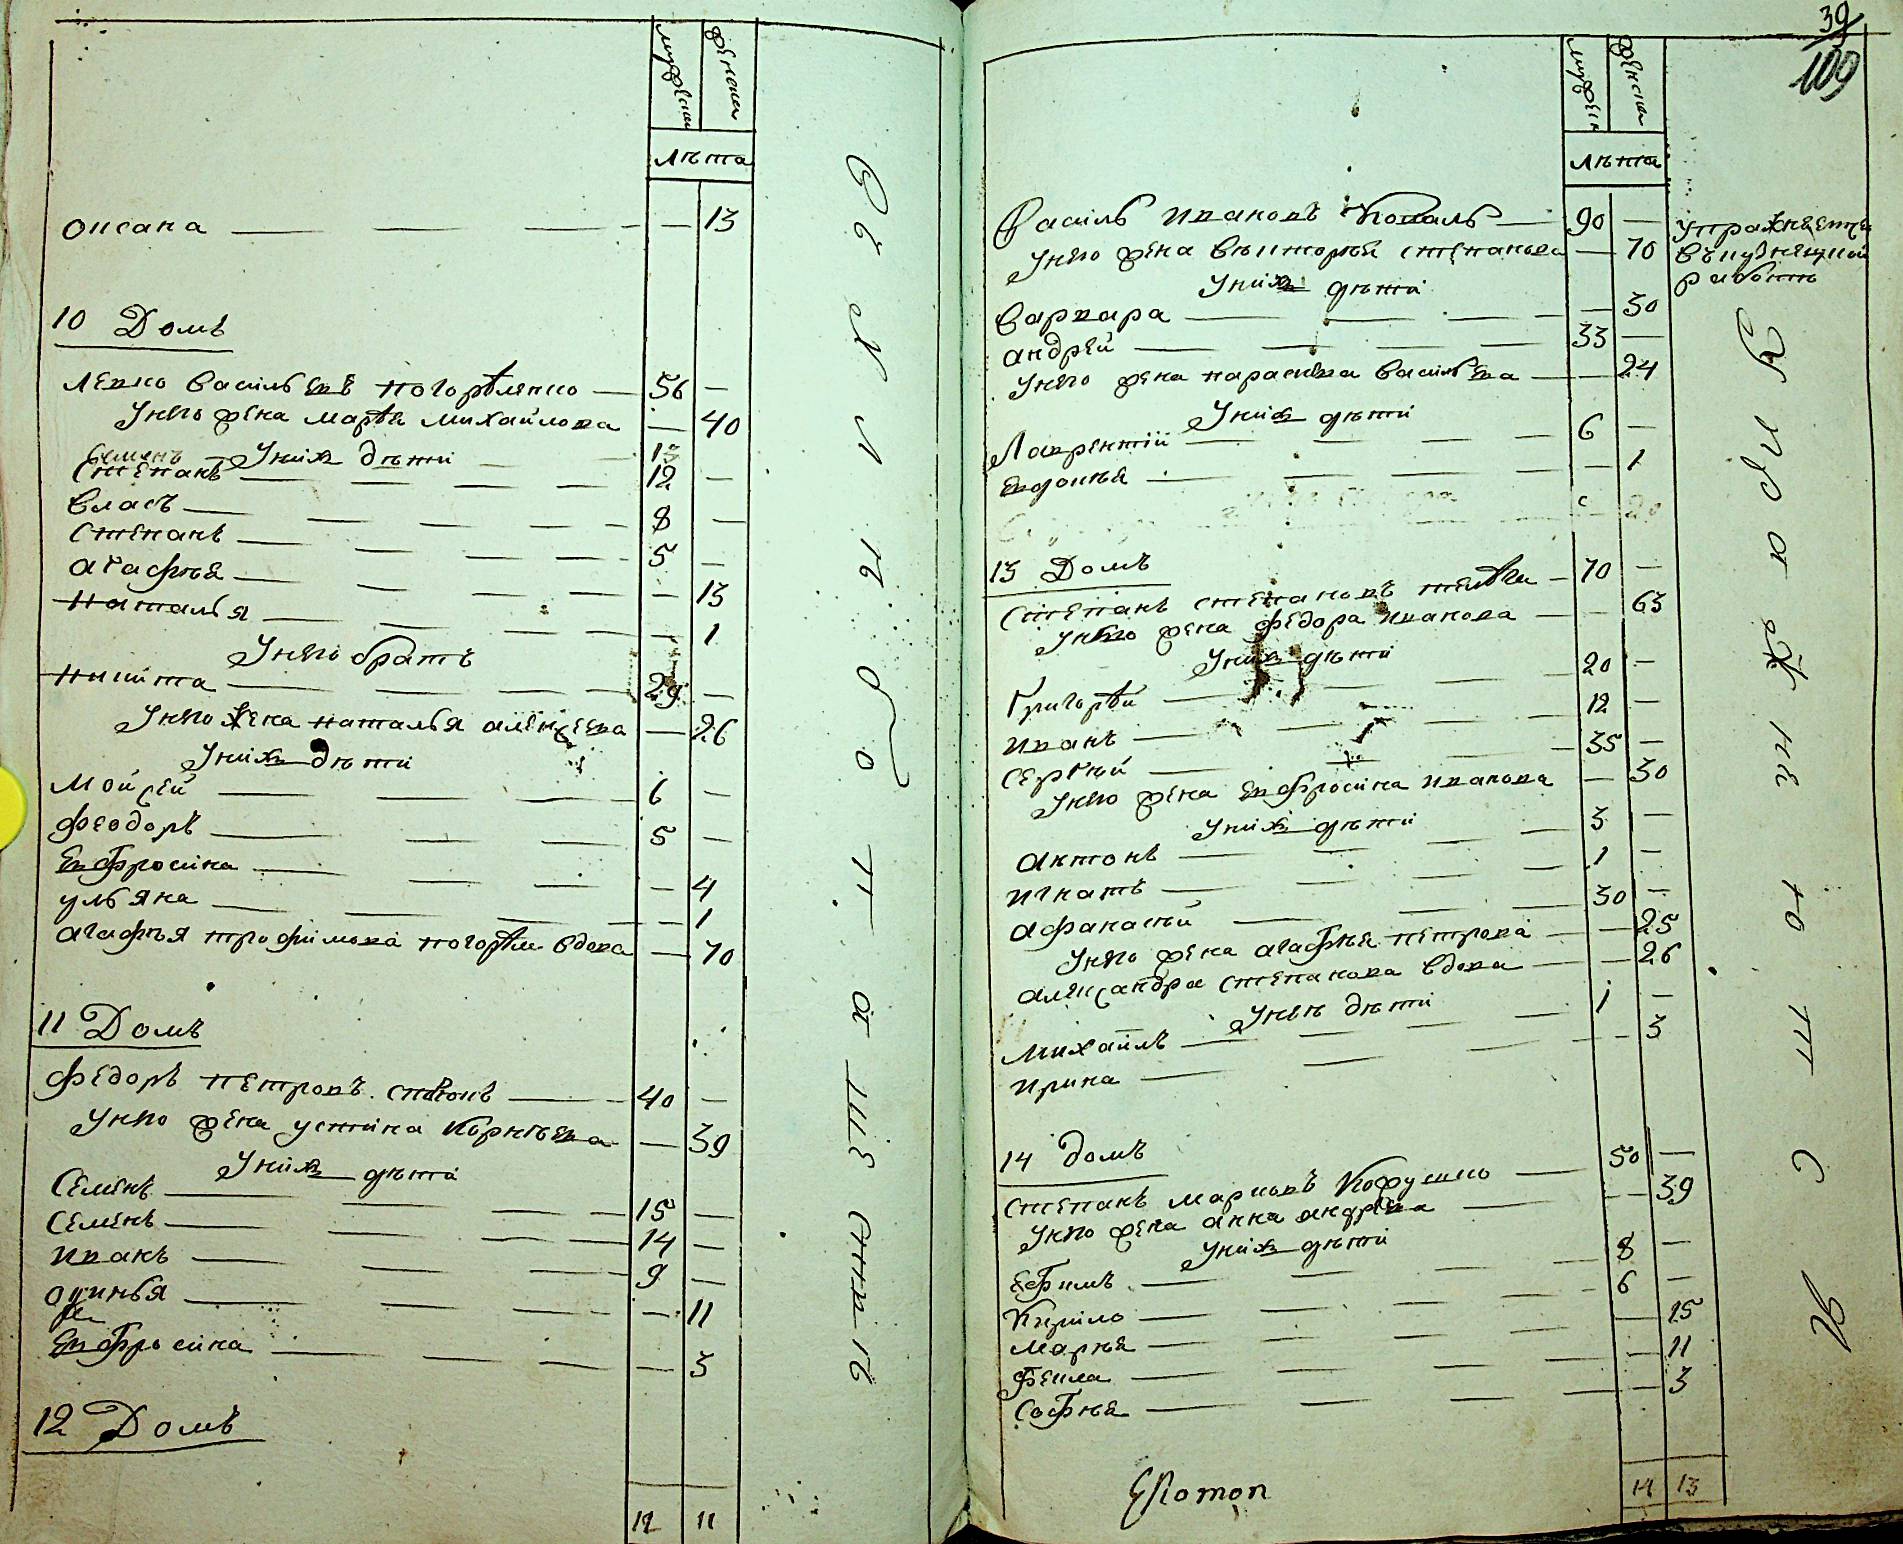 мужески женски
лѣта
Оксана 13
10 Домъ
Левко Васильевъ Погорѣленко 56
У него жена Марѣя Михайлова 40
У них дѣти
Семенъ 13
Степанъ 12
Власъ 8
Степанъ 5
Агафѣя 13
Наталья 1
У него братъ
Никита 29
У него жена Наталья Алексеева 26
У них дѣти
Мойсей 6
Феодоръ 5
Евфросина 4
Ульяна 1
Агафья Трофимова вдова 70
11 Домъ
Федоръ Петровъ 40
У него жена Устина Корнѣева 39
У них дѣти
Семенъ 15
Семенъ 14
Иванъ 9
11
Евфросина 3
12 Домъ
12 11
39
109
мужески женски
лѣта
Василь Ивановъ Коваль 90
У него жена Степанова 70
упражняется
в кузнецкой
работѣ
У них дѣти
Варвара 30
Андрей 33
У него жена Параскева Васильева 24
У них дѣти
Лаврентій 6
Евдокѣя 1
13 Домъ
Степанъ Степановъ 70
У него жена Федора Иванова 63
У них дѣти
Григорѣй 20
Иванъ 12
Сергѣй 35
У него жена Евфросина Иванова 30
У них дѣти
Антонъ 3
Игнатъ 1
Афанасѣй 30
У него жена Агафѣя Петрова 25
Александра Степанова вдова 26
У нея дѣти
Михайлъ 1
Ирина 3
14 домъ
Степанъ Марковъ 50
У него жена Анна Андрѣева 39
У них дѣти
Ефимъ 8
Кирило 6
Марѣя 15
Фекла 11
Софѣя 3
14 13